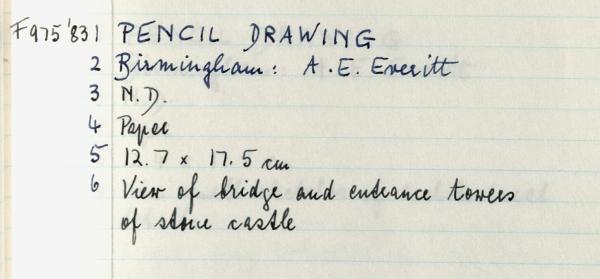 F975'83 1 PENCIL DRAWING
2 Birmingham: A.E. Everitt
3 N.D.
4 Paper
5 12.7 x 17.5 cm
6 View of bridge and entrance towers
of stone castle